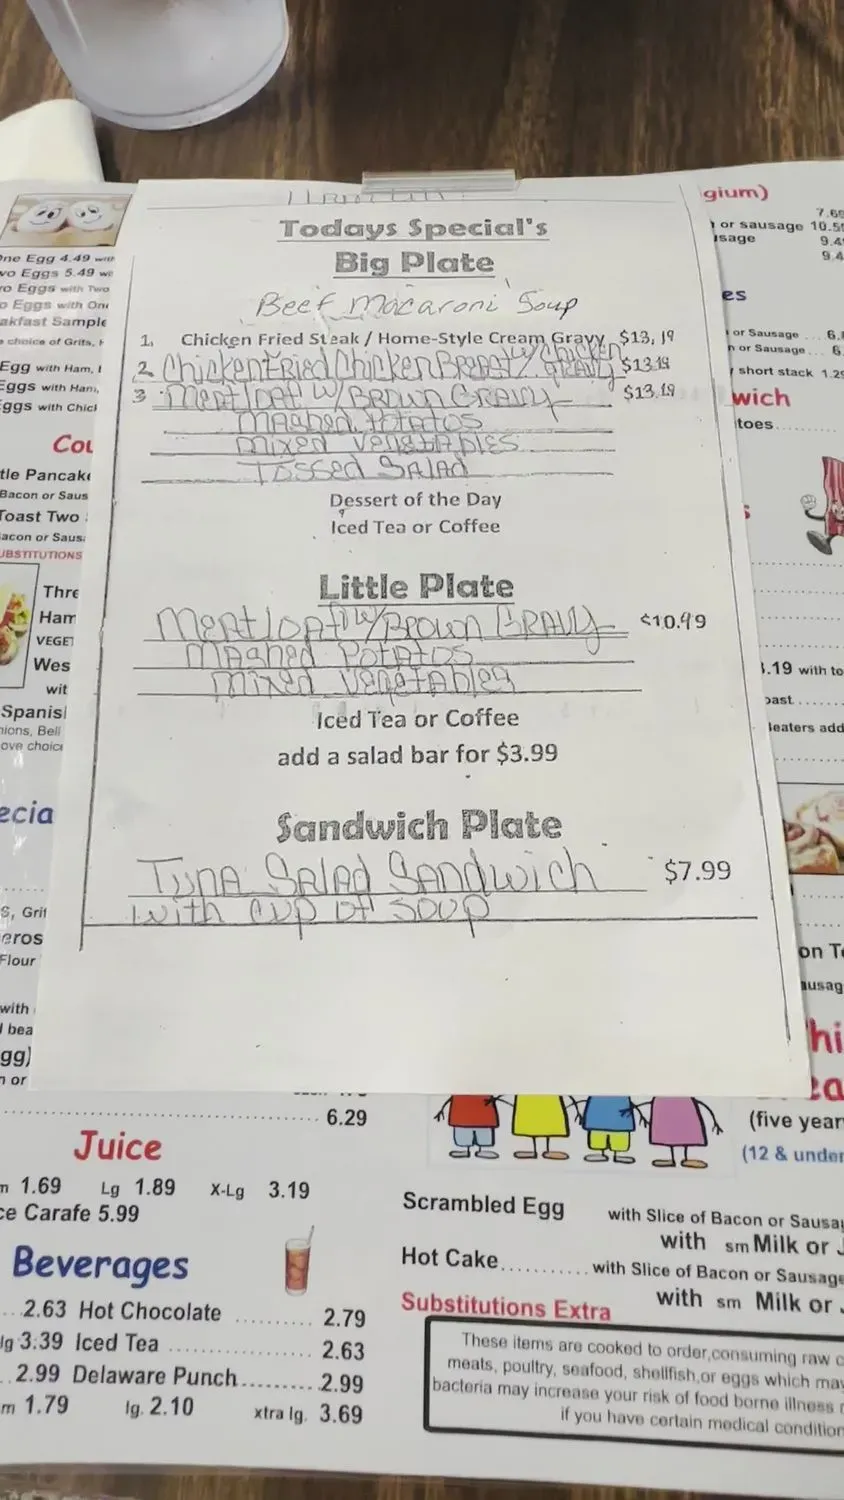 Todays Special's
Big Plate
Beef Macaroni Soup
1. Chicken Fried Steak / Home-Style Cream Gravy $13,19
2 Chicken Fried Chicken Breast w/ Chicken Gravy $13.19
3 Meatloaf w/ Brown Gravy $13.19
Mashed Potatos
Mixed Vegetables
Tossed Salad
Dessert of the Day
Iced Tea or Coffee
Little Plate
Meatloaf w/ Brown Gravy $10.99
Mashed Potatos
Mixed Vegetables
Iced Tea or Coffee
add a salad bar for $3.99
Sandwich Plate
Tuna Salad Sandwich $7.99
with cup of soup
One Egg 4.49 with
Eggs 5.49
Eggs with Two
Eggs with One
Sample
choice of Grits,
Egg with Ham,
Eggs with Ham,
Eggs with
Bacon or
Toast Two
SUBSTITUTIONS
Ham
with
Bell
Flour
with
or
6.29
Juice
1.69 Lg 1.89 X-Lg 3.19
Carafe 5.99
Beverages
2.63 Hot Chocolate 2.79
lg 3.39 Iced Tea 2.63
2.99 Delaware Punch 2.99
1.79 lg. 2.10 xtra lg. 3.69
gium)
or sausage
9.4
9.4
or Sausage
or Sausage
short stack
wich
toes
.19 with
add
(five year
(12 & under
Scrambled Egg with Slice of Bacon or
with sm Milk or
Hot Cake with Slice of Bacon or Sausage
with sm Milk or
Substitutions Extra
These items are cooked to order,consuming raw
meats, poultry, seafood, shellfish,or eggs which may
bacteria may increase your risk of food borne illness
if you have certain medical condition